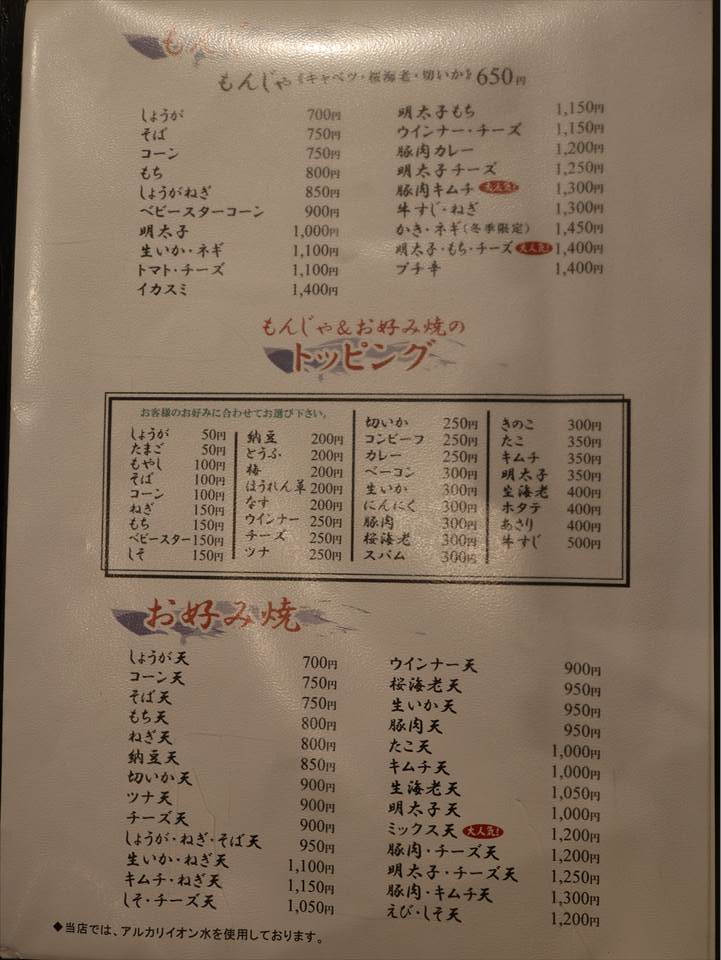 もんじゃ
もんじゃ《キャベツ・桜海老・切いか》650円
しょうが 700円
そば 750円
コーン 750円
もち 800円
しょうがねぎ 850円
ベビースターコーン 900円
明太子 1,000円
生いか・ネギ 1,100円
トマト・チーズ 1,100円
イカスミ 1,400円
明太子もち 1,150円
ウインナー・チーズ 1,150円
豚肉カレー 1,200円
明太子チーズ 1,250円
豚肉キムチ 大人気! 1,300円
牛すじ・ねぎ 1,300円
かき・ネギ(冬季限定) 1,450円
明太子・もち・チーズ 大人気! 1,400円
プチ辛 1,400円
もんじゃ&お好み焼の
トッピング
お客様のお好みに合わせてお選び下さい。
しょうが 50円
たまご 50円
もやし 100円
そば 100円
コーン 100円
ねぎ 150円
もち 150円
ベビースター 150円
しそ 150円
納豆 200円
とうふ 200円
梅 200円
ほうれん草 200円
なす 200円
ウインナー 250円
チーズ 250円
ツナ 250円
切いか 250円
コンビーフ 250円
カレー 250円
ベーコン 300円
生いか 300円
にんにく 300円
豚肉 300円
桜海老 300円
スパム 300円
きのこ 300円
たこ 350円
キムチ 350円
明太子 350円
生海老 400円
ホタテ 400円
あさり 400円
牛すじ 500円
お好み焼
しょうが天 700円
コーン天 750円
そば天 750円
もち天 800円
ねぎ天 800円
納豆天 850円
切いか天 900円
ツナ天 900円
チーズ天 900円
しょうが・ねぎ・そば天 950円
生いか・ねぎ天 1,100円
キムチ・ねぎ天 1,150円
しそ・チーズ天 1,050円
ウインナー天 900円
桜海老天 950円
生いか天 950円
豚肉天 950円
たこ天 1,000円
キムチ天 1,000円
生海老天 1,050円
明太子天 1,000円
ミックス天 大人気! 1,200円
豚肉・チーズ天 1,200円
明太子・チーズ天 1,250円
豚肉・キムチ天 1,300円
えび・しそ天 1,200円
◆当店では、アルカリイオン水を使用しております。